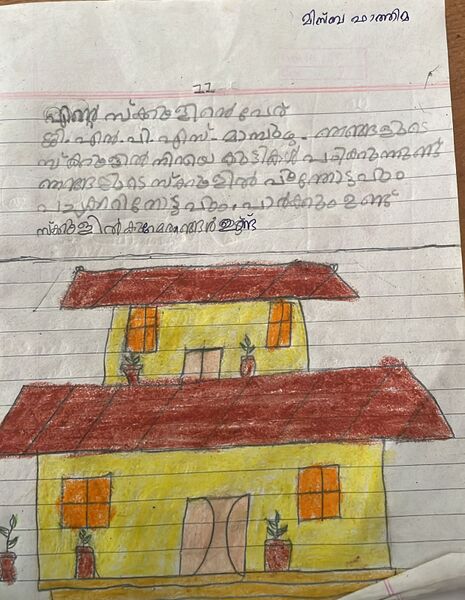 മിസ്ബ ഫാത്തിമ
11
എന്റെ സ്ക്കൂളിന്റെ പേര്
ജി.എൽ.പി.എസ്- മാമ്പുഴ. ഞങ്ങളുടെ
സ്ക്കൂളിൽ നിറയെ കുട്ടികൾ പഠിക്കുന്നുണ്ട്
ഞങ്ങളുടെ സ്ക്കൂളിൽ പൂന്തോട്ടവും
പച്ചക്കറിതോട്ടവും, പാർക്കും ഉണ്ട്
സ്ക്കൂളിൽ കുറേ മരങ്ങൾ ഉണ്ട്